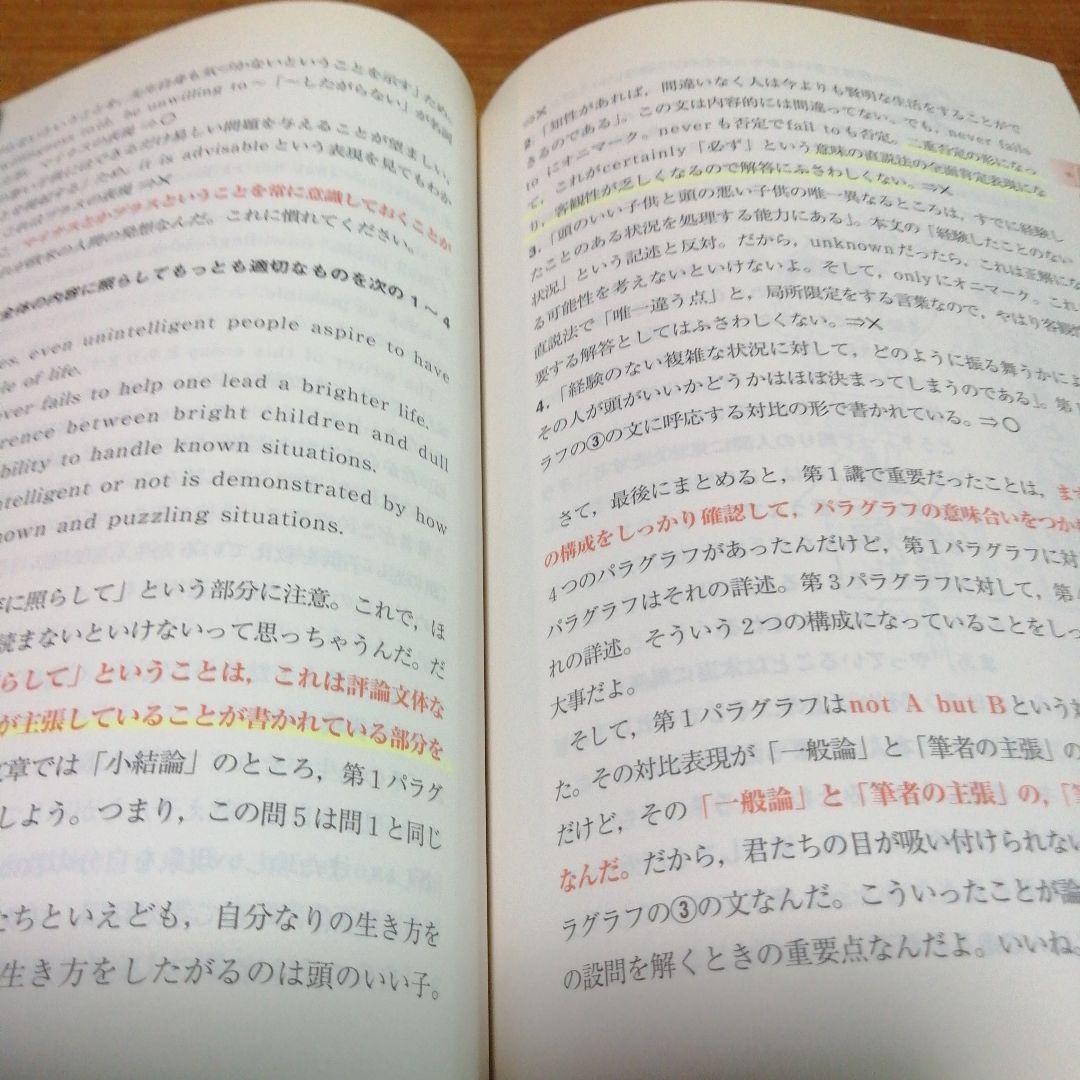 ということを示す」ため。
be unwilling to～「～したがらない」が名詞
⇒○
易しい問題を与えることが望ましい。
it is advisableという表現を見てもわか
⇒×
マイナスとかプラスということを常に意識しておくことが
の人間の発想なんだ。これに慣れてください。
全体の内容に照らしてもっとも適切なものを次の1～4
even unintelligent people aspire to have
of life.
ver fails to help one lead a brighter life.
rence between bright children and dull
bility to handle known situations.
ntelligent or not is demonstrated by how
nown and puzzling situations.
に照らして」という部分に注意。これで，ほ
読まないといけないって思っちゃうんだ。だ
らして」ということは，これは評論文体な
が主張していることが書かれている部分を
文章では「小結論」のところ，第1パラグ
しよう。つまり，この問5は問1と同じ
たちといえども，自分なりの生き方を
生き方をしたがるのは頭のいい子。
⇒×
2.「知性があれば，間違いなく人は今よりも賢明な生活をすることがで
きるのである」。この文は内容的には間違ってない。でも，never fails
to にオニマーク。neverも否定でfail toも否定。二重否定の形になっ
て，これがcertainly「必ず」という意味の直説法の全面肯定表現にな
り，客観性が乏しくなるので解答にふさわしくない。⇒×
3.「頭のいい子供と頭の悪い子供の唯一異なるところは，すでに経験し
たことのある状況を処理する能力にある」。本文の「経験したことのない
状況」という記述と反対。だから，unknownだったら，これは正解にな
る可能性を考えないといけないよ。そして，onlyにオニマーク。これ
直説法で「唯一違う点」と，局所限定をする言葉なので，やはり客観
要する解答としてはふさわしくない。⇒×
4.「経験のない複雑な状況に対して，どのように振る舞うかによ
その人が頭がいいかどうかはほぼ決まってしまうのである」。第1
ラフの③の文に呼応する対比の形で書かれている。⇒○
さて，最後にまとめると，第1講で重要だったことは，まず
の構成をしっかり確認して，パラグラフの意味合いをつか
4つのパラグラフがあったんだけど，第1パラグラフに対
パラグラフはそれの詳述。第3パラグラフに対して，第
れの詳述。そういう2つの構成になっていることをしっ
大事だよ。
そして，第1パラグラフはnot A but Bという対
た。その対比表現が「一般論」と「筆者の主張」の
だけど，その「一般論」と「筆者の主張」の，「
なんだ。だから，君たちの目が吸い付けられない
ラグラフの③の文なんだ。こういったことが論
の設問を解くときの重要点なんだよ。いいね。